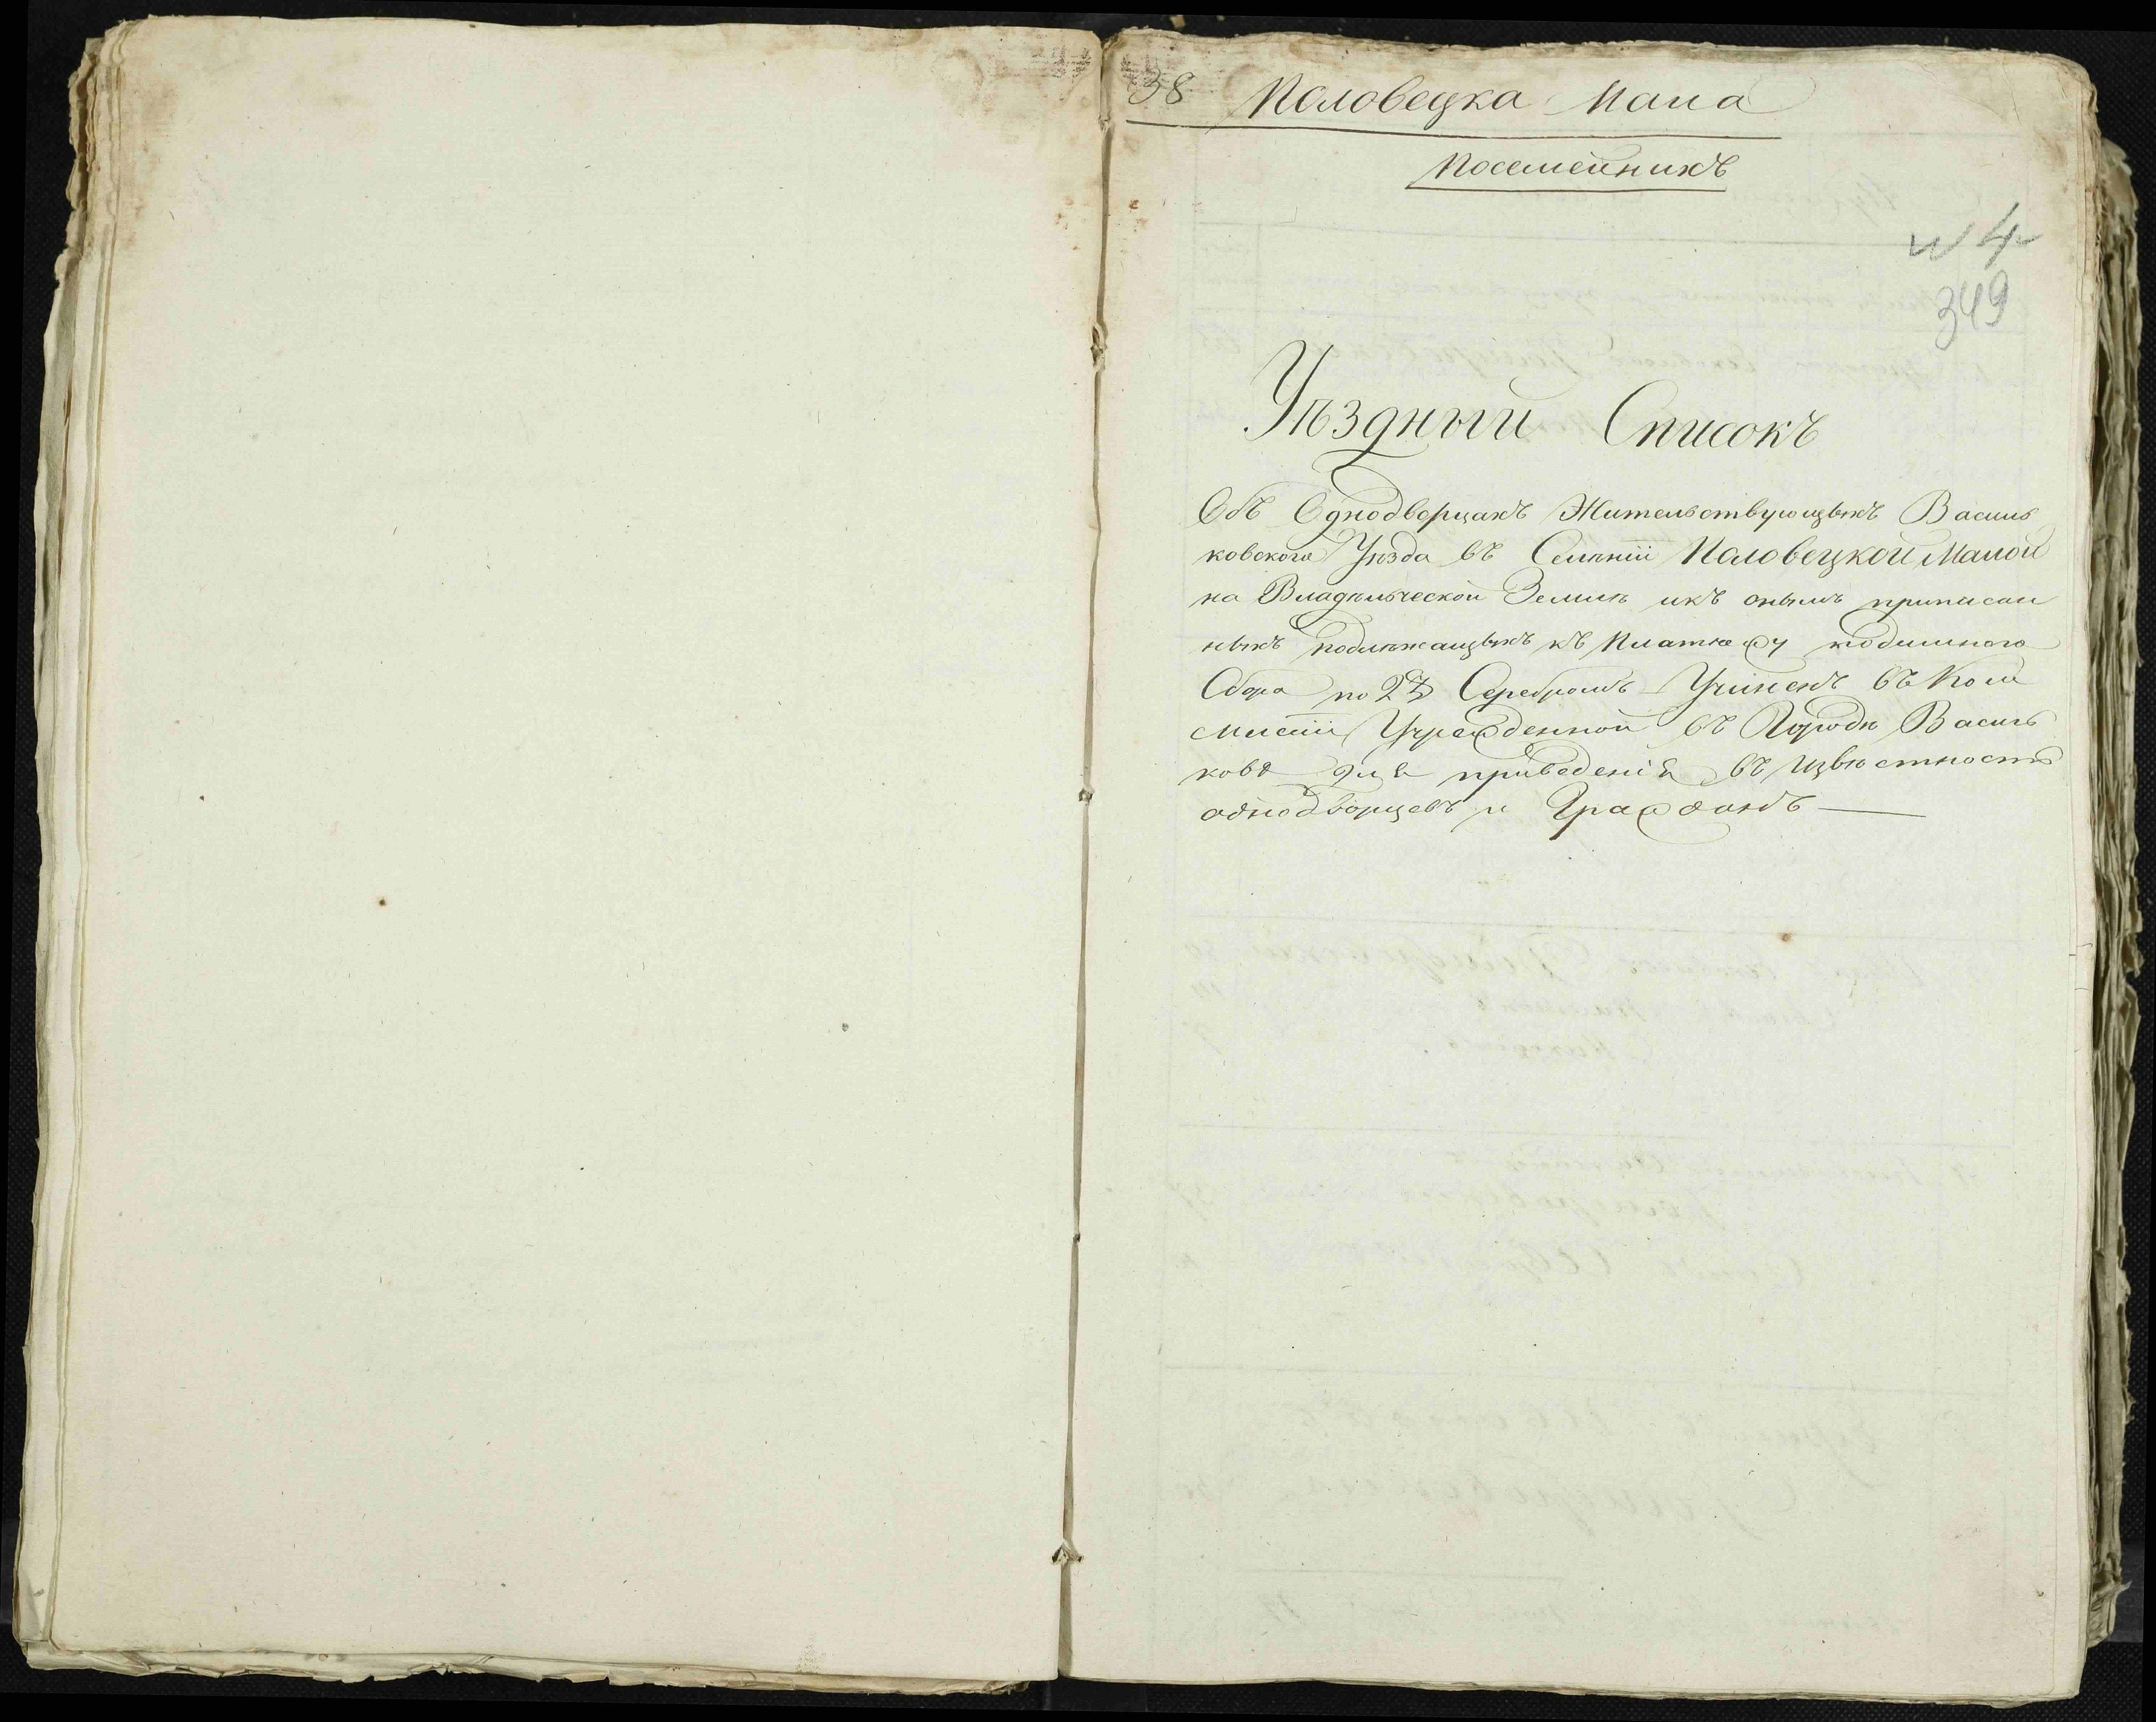 38 Половецка Мала
Посемейникъ
№ 4
349
Уѣздный Списокъ
Объ Однодворцахъ Жительствующихъ Василь
ковского Уѣзда въ Селѣніи Половецкой Малой
на Владѣльческой Землѣ икъ онымъ приписан
ныхъ подлѣжащыхъ къ Платежу подымного
Сбора по 2 Серебромъ Учиненъ въ Ком
мисіи Учрежденной въ Городѣ Василь
ковѣ для приведенія въ Извѣстность
однодворцевъ и Гражданъ